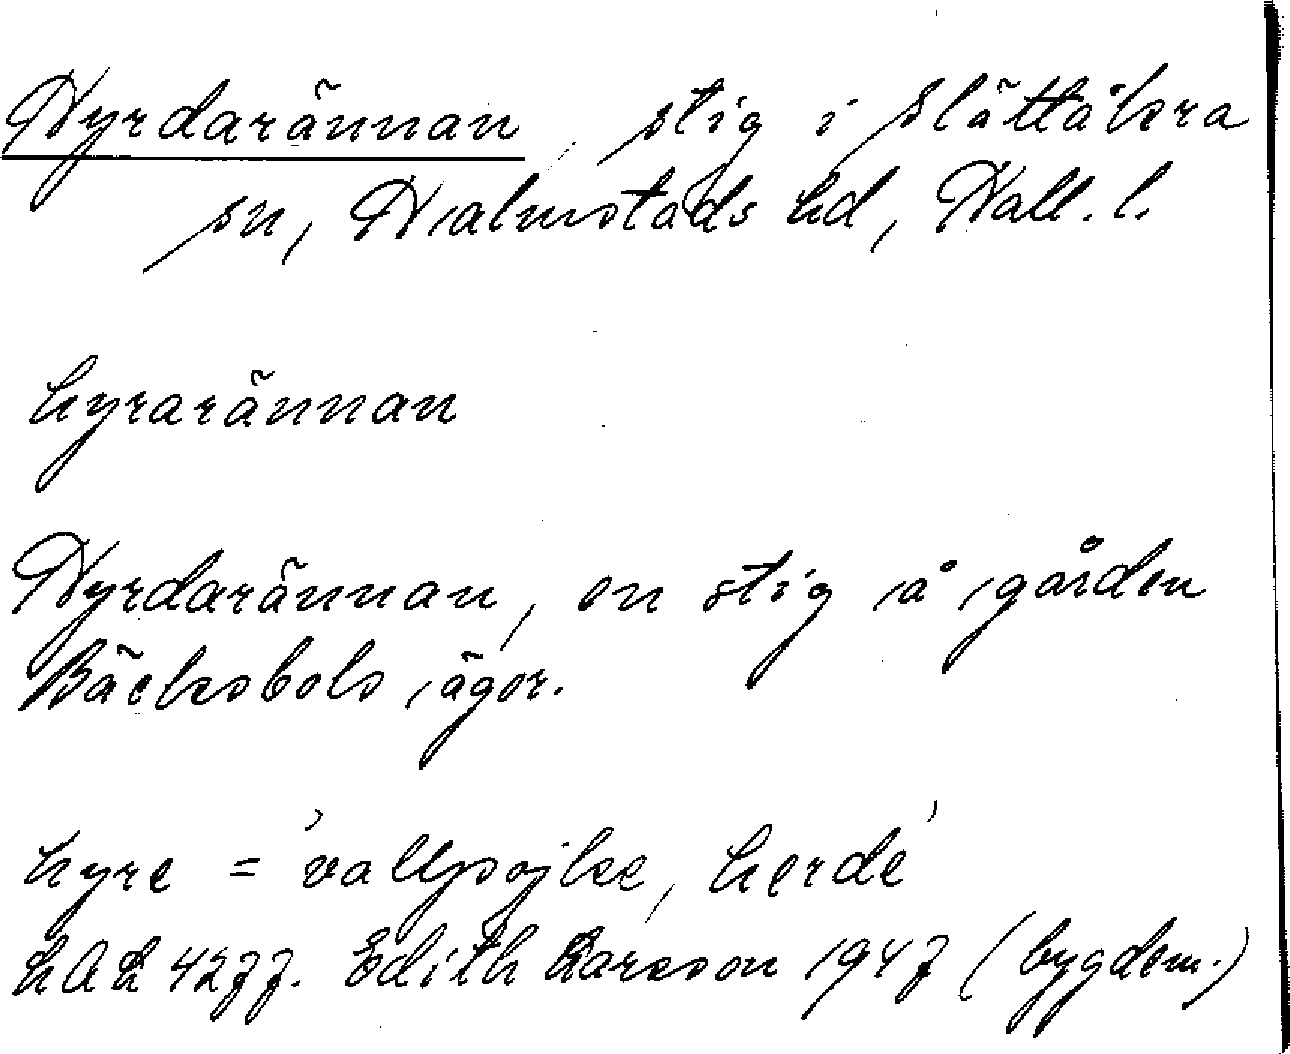 Hyrdarännan, stig i Slättåkra
sn, Halmstads hd, Hall. l.
hyrarännan
Hyrdarännan, en stig å gården
Bäcksbols ägor.
hyre = 'vallpojke, herde'
LAL 4277. Edith Larsson 1947 (bygdem.)